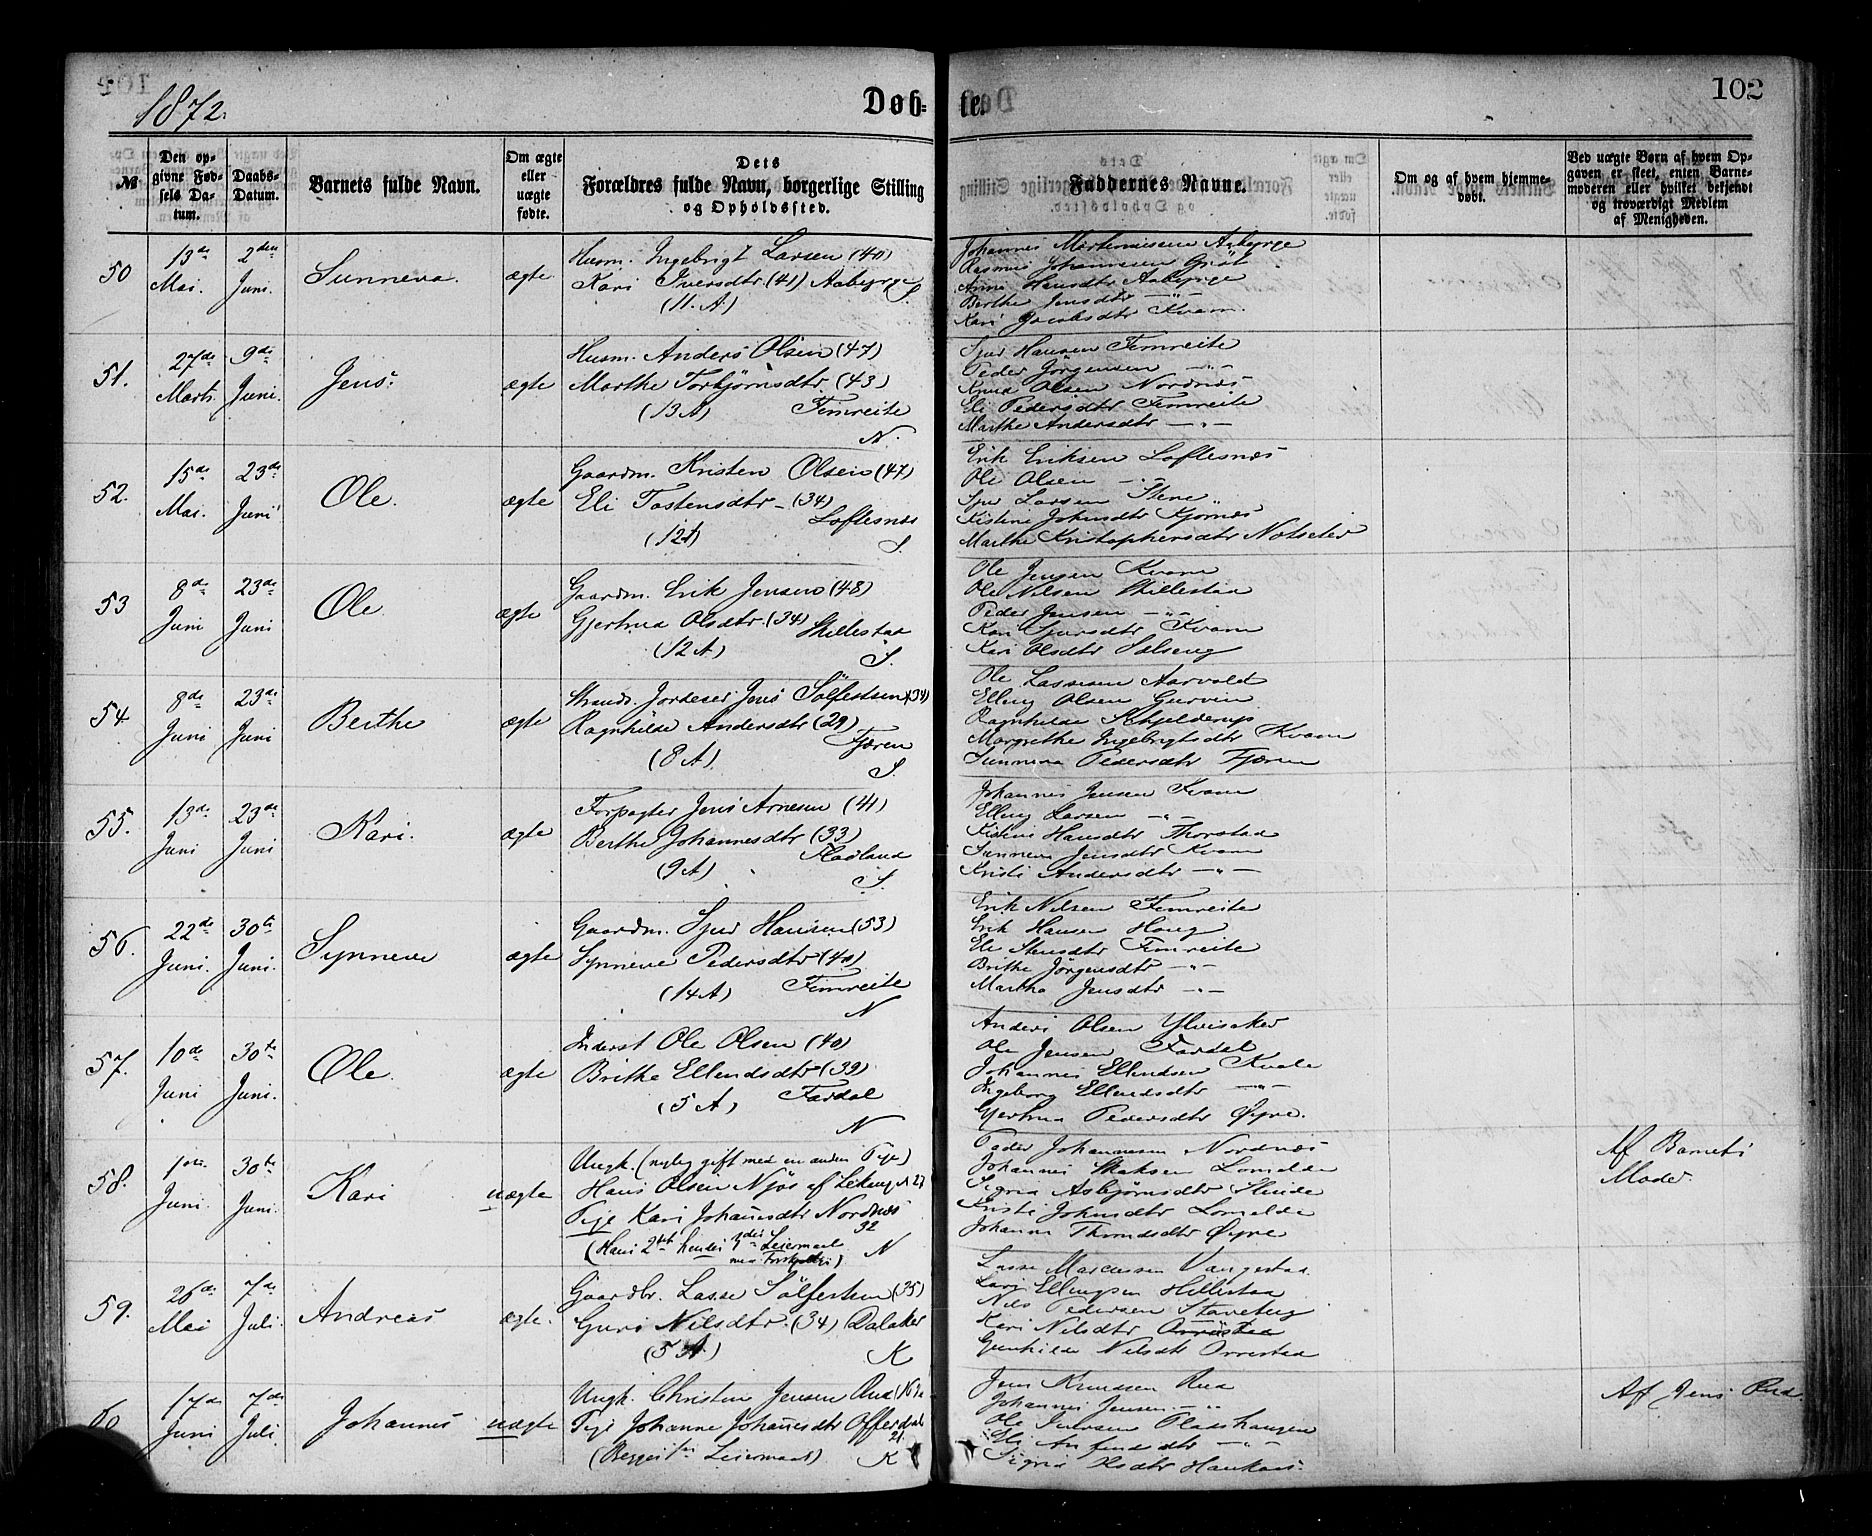 1872.
Døb-
te.
102
№
Den op-
givne Fød-
sels Da-
tum.
Daabs-
Datum.
Barnets fulde Navn.
Om ægte
eller
uægte
fødte.
Dets
Forældres fulde Navn, borgerlige Stilling
og Opholdssted.
Faddernes Navne.
Om og af hvem hjemme-
døbt.
Ved uægte Børn af hvem Op-
gaven er skeet, enten Barne-
moderen eller hvilket bekjendt
og troværdigt Medlem
af Menigheden.
50
13de
Mai.
2den
Juni.
Sunneva.
ægte
Husm. Ingebrigt Larsen (40)
Kari Iversdtr (41) Aaberge
(11. A) S.
Johannes Mortensen Aaberge
Rasmus Johannesen
Anna Hansdtr Aaberge
Berthe Jensdtr —"—
Kari Jacobsdtr Kvam.
51.
27de
Marts
9de
Juni.
Jens.
ægte
Husm. Anders Olsen (47)
Marthe Torbjörnsdtr (43)
(13 A) Fimreite
N.
Sjur Hansen Fimreite
Peder Jörgensen —"—
Knud Olsen Nordnæs
Eli Pedersdtr Fimreite
Marthe Andersdtr —"—
52.
15de
Mai.
23de
Juni
Ole.
ægte
Gaardm. Kristen Olsen (47)
Eli Tostensdtr (34)
Loftesnæs
(12A) S.
Erik Eriksen Loftesnæs
Ole Olsen —"—
Sjur Larsen Stene
Kistine Johnsdtr Kjørnæs
Marthe Kristophersdtr Notseter
53
8de
Juni
23de
Juni
Ole
ægte
Gaardm. Erik Jensen (48)
Gjertrud Olsdtr. (34) Skillestad
(12 A) S.
Ole Jensen Kvam
Ole Nilsen Skillestad
Peder Jensen —"—
Kari Sjursdtr Kvam
Kari Olsdtr Sølseng
54
8de
Juni
23de
Juni
Berthe
ægte
Strands. Jordeier Jens Sölfestsen (34)
Ragnhilde Andersdtr (29)
Fjæren
(8 A) S.
Ole Lassesen Aarvold
Elling Olsen Gurvin
Ragnhilde Schjelderup
Margrethe Ingebrigtsdtr Kvam
Sunneva Pedersdtr Fjæren
55.
13de
Juni
23de
Juni
Kari.
ægte
Forpagter Jens Arnesen (41)
Berthe Johannesdtr (33)
Fladland
(9 A) S.
Johannes Jensen Kvam
Elling Larsen —"—
Kistine Hansdtr Thorstad
Sunneva Jensdtr Kvam
Kristi Andersdtr —"—
56.
22de
Juni.
30te
Juni.
Synneve
ægte
Gaardm. Sjur Hansen (53)
Synneve Pedersdtr (40)
(14 A) Fimreite
N
Erik Nilsen Fimreite
Erik Hansen Houg
Eli Stensdtr Fimreite
Brithe Jörgensdtr —"—
Martha Jensdtr —"—
57.
10de
Juni
30te
Juni.
Ole.
ægte
Inderst Ole Olsen (40)
Brithe Ellendsdtr (39)
(5 A) Fardal
N
Anders Olsen Ylvisaker
Ole Jensen Fardal
Johannes Ellendsen Kvale
Ingeborg Ellendsdtr —"—
Gjertrud Pedersdtr Øyre.
58.
1ste
Juni.
30te
Juni.
Kari
uægte
Ungk. (nylig gift med en anden Pige)
Hans Olsen Njös af Lekanger 27
Pige Kari Johannesdtr Nordnæs
32
(Hans 2det hendes 1ste Leiermaal
N
Peder Johannesen Nordnæs
Johannes Lomelde
Sigrid Asbjörnsdtr Slinde
Kristi Johnsdtr Lomelde
Johanna Thomdsdtr Øyre
Af Barnets
Moder.
59.
26de
Mai
7de
Juli.
Andreas
ægte.
Gaardbr. Lasse Sölfestsen (35)
Guri Nilsdtr. (34) Dalaker
(5 A) K
Lasse Marcussen Vangestad
Lars Ellingsen Hillestad
Nils Pedersen Stavebrg
Kari Nilsdtr Orrestad
Gunhilde Nilsdtr Orrestad
60
17de
Juni
7de
Juli
Johannes
uægte
Ungk. Christen Jensen Rud
Pige Johanne Johannesdtr Offerdal
21.
(Begges 1ste Leiermaal) K
Jens Knudsen Rud
Johannes Jensen —"—
Ole Iversen Pladshaugen
Eli Anfinsdtr —"—
Sigrid Olsdtr Haukaas.
Af Jens Rud.